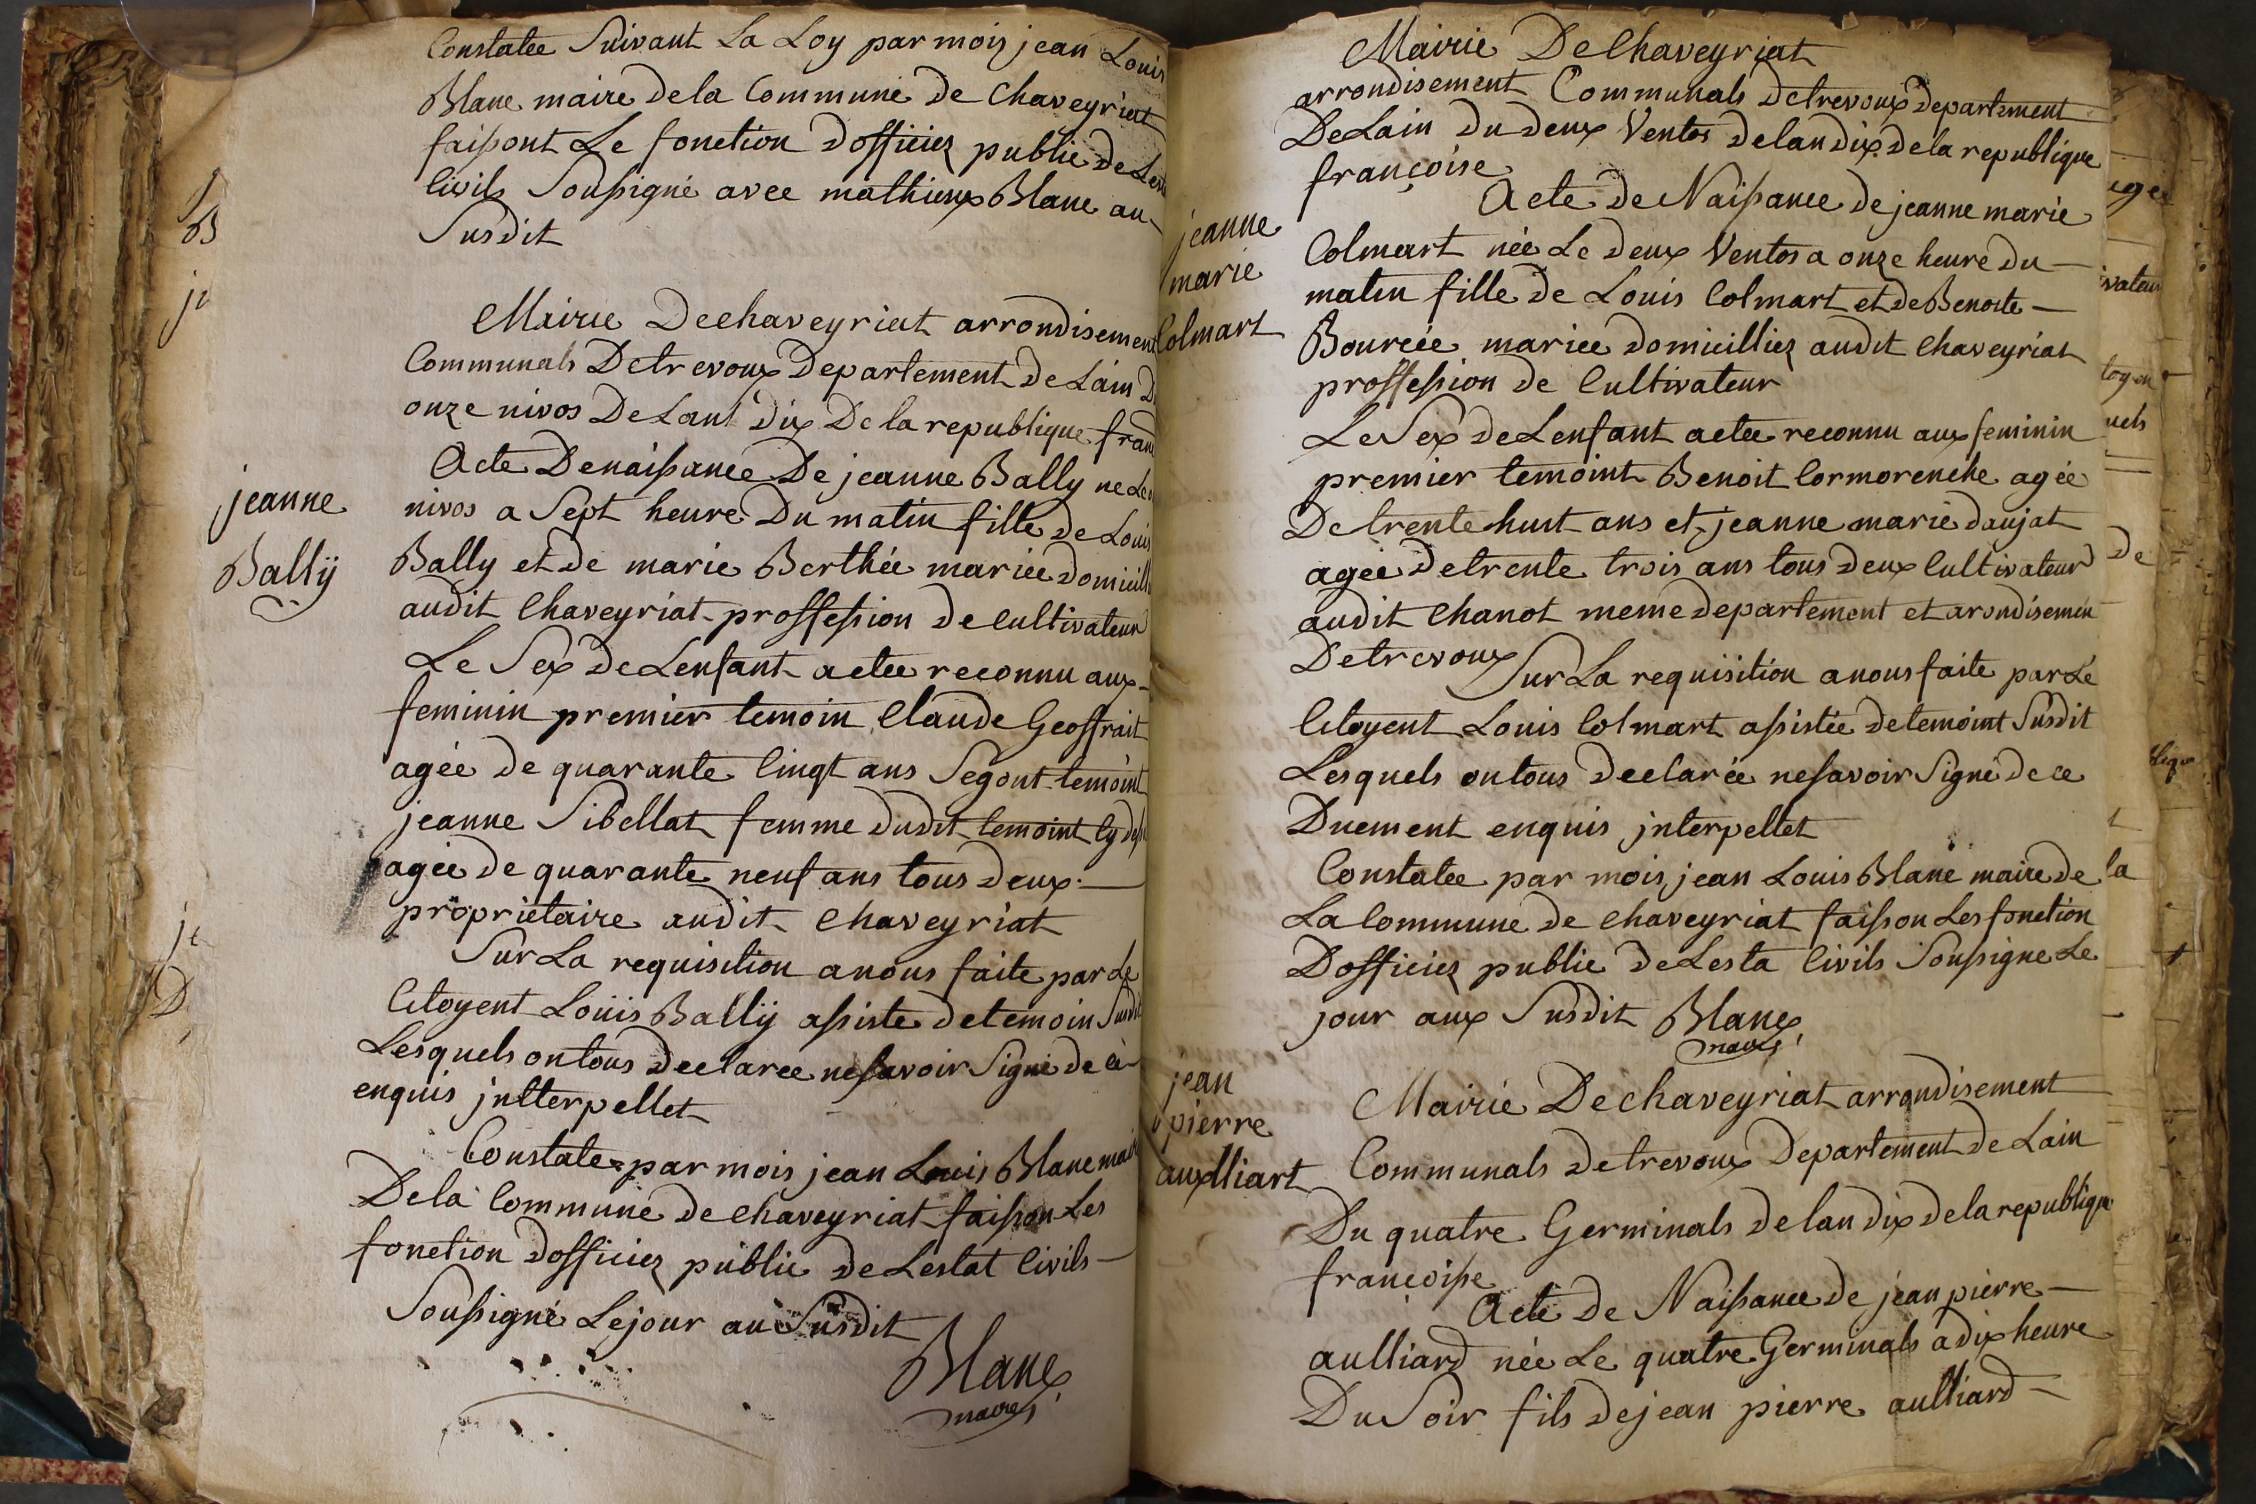 Constatée Suivant La Loy par mois jean Louis
Blanc maire dela Commune de Chaveyriat
faisont Le fonction dofficier public de Lesta
Civils Soussigné avec mathieux Blanc au
Susdit
Mairie Dechaveyriat arrondisement
Communals Detrevoux Departement de Lain Du
onze nivos De Lant dix De la republique franc
Acte Denaissance De jeanne Bally ne Le
nivos a Sept heure Du matin fille de Louis
jeanne
Bally
Bally et de marie Berthée mariée domicill
audit Chaveyriat proffession de Cultivateur
Le Sex de Lenfant a etee reconnu aux
feminin premier temoin Claude Geoffrait
agée de quarante Cinqt ans Segont temoint
jeanne Sibellat femme dudit temoint Cy
agée de quarante neuf ans tous deux
proprietaire audit Chaveyriat
Sur La requisition a nous faite par Le
Citoyent Loüis Ballÿ assiste de temoin Susdit
Lesquels on tous declaree ne savoir Signé de ce
enquis jnterpellet
Constatee par mois jean Louis Blanc maire
Dela Commune de Chaveyriat faisson Les
fonction dofficier public de Lestat Civils
Soussigné Le jour au Susdit
Blanc
maire
Mairie De Chaveyriat
arrondisement Communals Detrevoux departement
De Lain du deux Ventos de lan dix de la republique
françoise
Acte de Naissance de jeanne marie
jeanne
marie
Colmart
Colmart née Le deux Ventos a onze heure du
matin fille de Louis Colmart et de Benoite
Bourcée mariee domicilliez audit Chaveyriat
proffession de Cultivateur
Le Sex de Lenfant a etee reconnu aux feminin
premier temoint Benoit Cormorenche agée
De trente huit ans et jeanne marie daujat
agée de trente trois ans tous deux Cultivateur
audit Chanot meme departement et arondisemen
Detrevoux
Sur La requisition a nous faite par Le
Citoyent Louis Colmart assistée de temoint Susdit
Lesquels on tous declarée ne savoir Signé de ce
Duement enquis jnterpellet
Constatee par mois jean Louis Blanc maire de
La Commune de Chaveyriat faisson Les fonction
Dofficier public de Lesta Civils Soussigne Le
jour aux Susdit Blanc
maire
jean
pierre
auxlliart
Mairie De Chaveyriat arrondisement
Communals de trevoux Departement de Lain
Du quatre Germinals de lan dix de la republique
françoise
Acte de Naissance de jean pierre
aulliard née Le quatre Germinals a dix heure
Du Soir fils de jean pierre aulliard